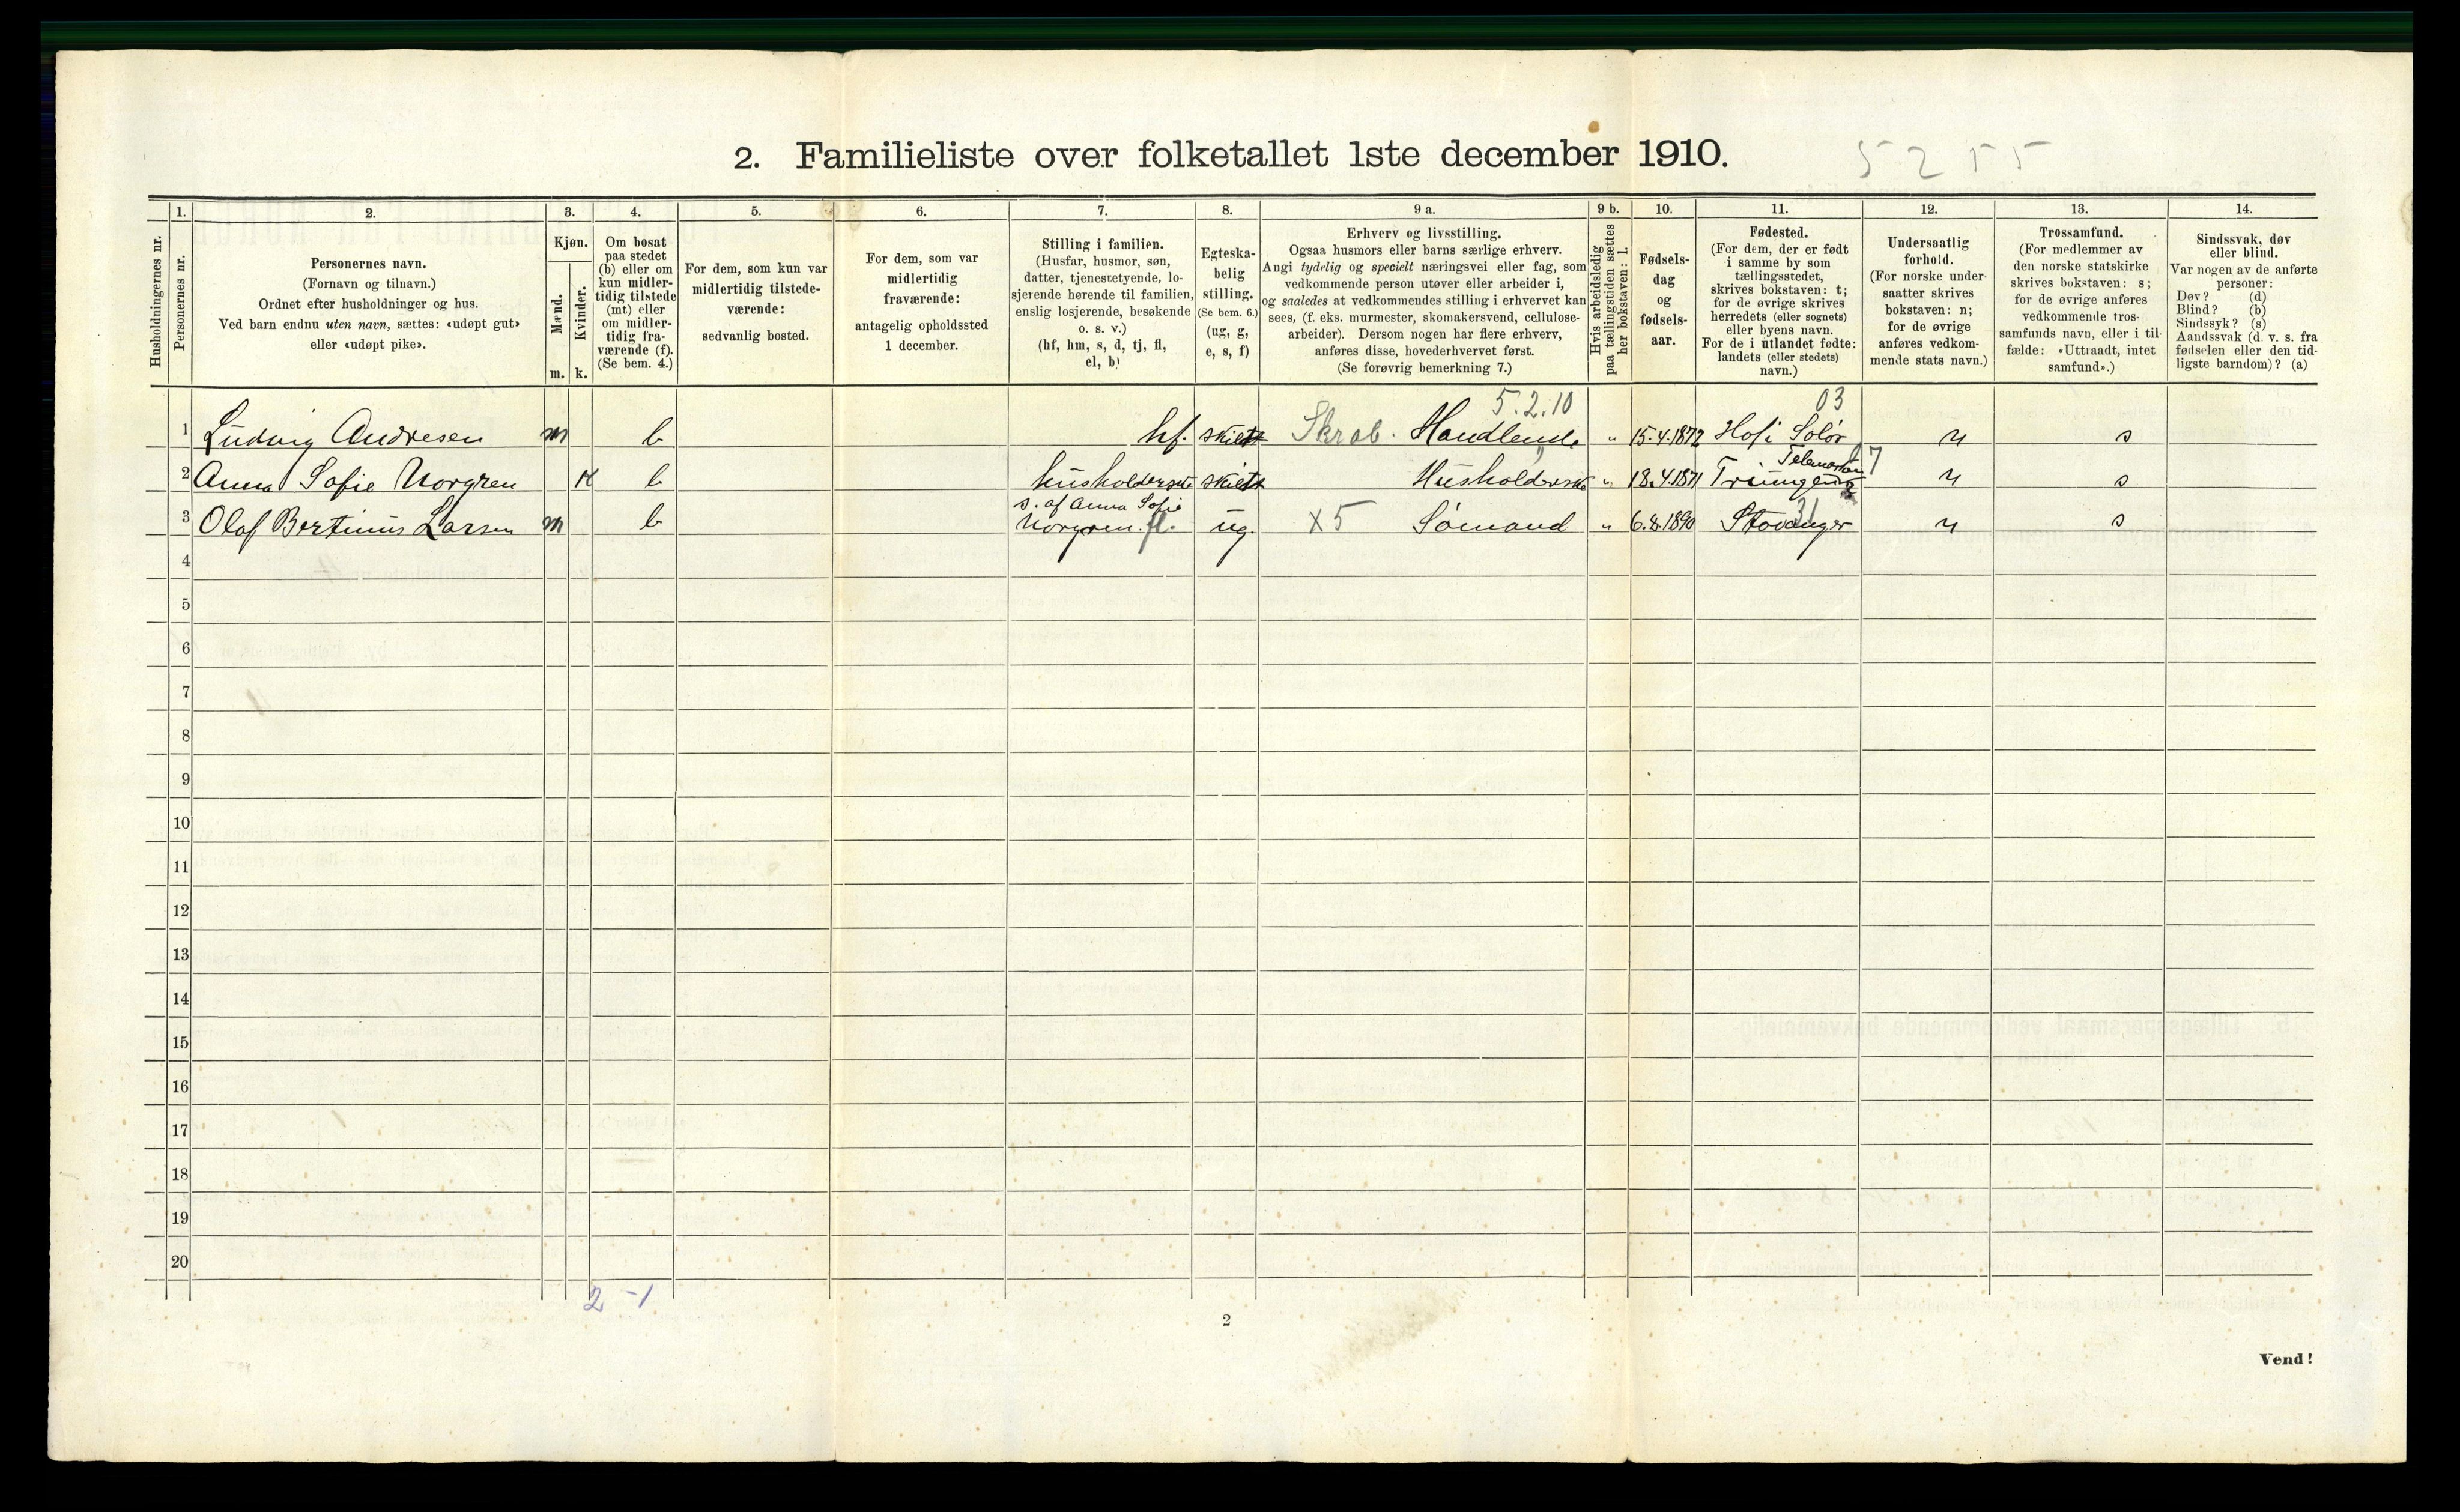 2. Familieliste over folketallet 1ste december 1910.
5255
Husholdningernes nr.
1.
Personernes nr.
2.
Personernes navn.
(Fornavn og tilnavn.)
Ordnet efter husholdninger og hus.
Ved barn endnu uten navn, sættes: «udøpt gut»
eller «udøpt pike».
3.
Kjøn.
Mænd.
m.
Kvinder.
k.
4.
Om bosat
paa stedet
(b) eller om
kun midler-
tidig tilstede
(mt) eller
om midler-
tidig fra-
værende (f).
(Se bem. 4.)
5.
For dem, som kun var
midlertidig tilstede-
værende:
sedvanlig bosted.
6.
For dem, som var
midlertidig
fraværende:
antagelig opholdssted
1 december.
7.
Stilling i familien.
(Husfar, husmor, søn,
datter, tjenestetyende, lo-
sjerende hørende til familien,
enslig losjerende, besøkende
o. s. v.)
(hf, hm, s, d, tj, fl,
el, b)
8.
Egteska-
belig
stilling.
(Se bem. 6.)
(ug, g,
e, s, f)
9 a.
Erhverv og livsstilling.
Ogsaa husmors eller barns særlige erhverv.
Angi tydelig og specielt næringsvei eller fag, som
vedkommende person utøver eller arbeider i,
og saaledes at vedkommendes stilling i erhvervet kan
sees, (f. eks. murmester, skomakersvend, cellulose-
arbeider). Dersom nogen har flere erhverv,
anføres disse, hovederhvervet først.
(Se forøvrig bemerkning 7.)
9 b.
Hvis arbeidsledig
paa tællingstiden sættes
her bokstaven: l.
10.
Fødsels-
dag
og
fødsels-
aar.
11.
Fødested.
(For dem, der er født
i samme by som
tællingsstedet,
skrives bokstaven: t;
for de øvrige skrives
herredets (eller sognets)
eller byens navn.
For de i utlandet fødte:
landets (eller stedets)
navn.)
12.
Undersaatlig
forhold.
(For norske under-
saatter skrives
bokstaven: n;
for de øvrige
anføres vedkom-
mende stats navn.)
13.
Trossamfund.
(For medlemmer av
den norske statskirke
skrives bokstaven: s;
for de øvrige anføres
vedkommende tros-
samfunds navn, eller i til-
fælde: «Uttraadt, intet
samfund».)
14.
Sindssvak, døv
eller blind.
Var nogen av de anførte
personer:
Døv? (d)
Blind? (b)
Sindssyk? (s)
Aandssvak (d. v. s. fra
fødselen eller den tid-
ligste barndom)? (a)
5.2.10 03
1 Ludvig Andresen m b hf. skilt Skrab. Handlende " 15.4.1872 Hof i Solør n s
Telemarken 7
2 Anna Sofie Norgren K b husholderske skilt Husholderske " 18.4.1871 n s
s. af Anna Sofie
3 Olaf Bertinius Larsen m b Norgren. fl. ug. X5 Sømand " 6.8.1890 Stavanger 31 n s
4
5
6
7
8
9
10
11
12
13
14
15
16
17
18
19
20
2 - 1
2
Vend!